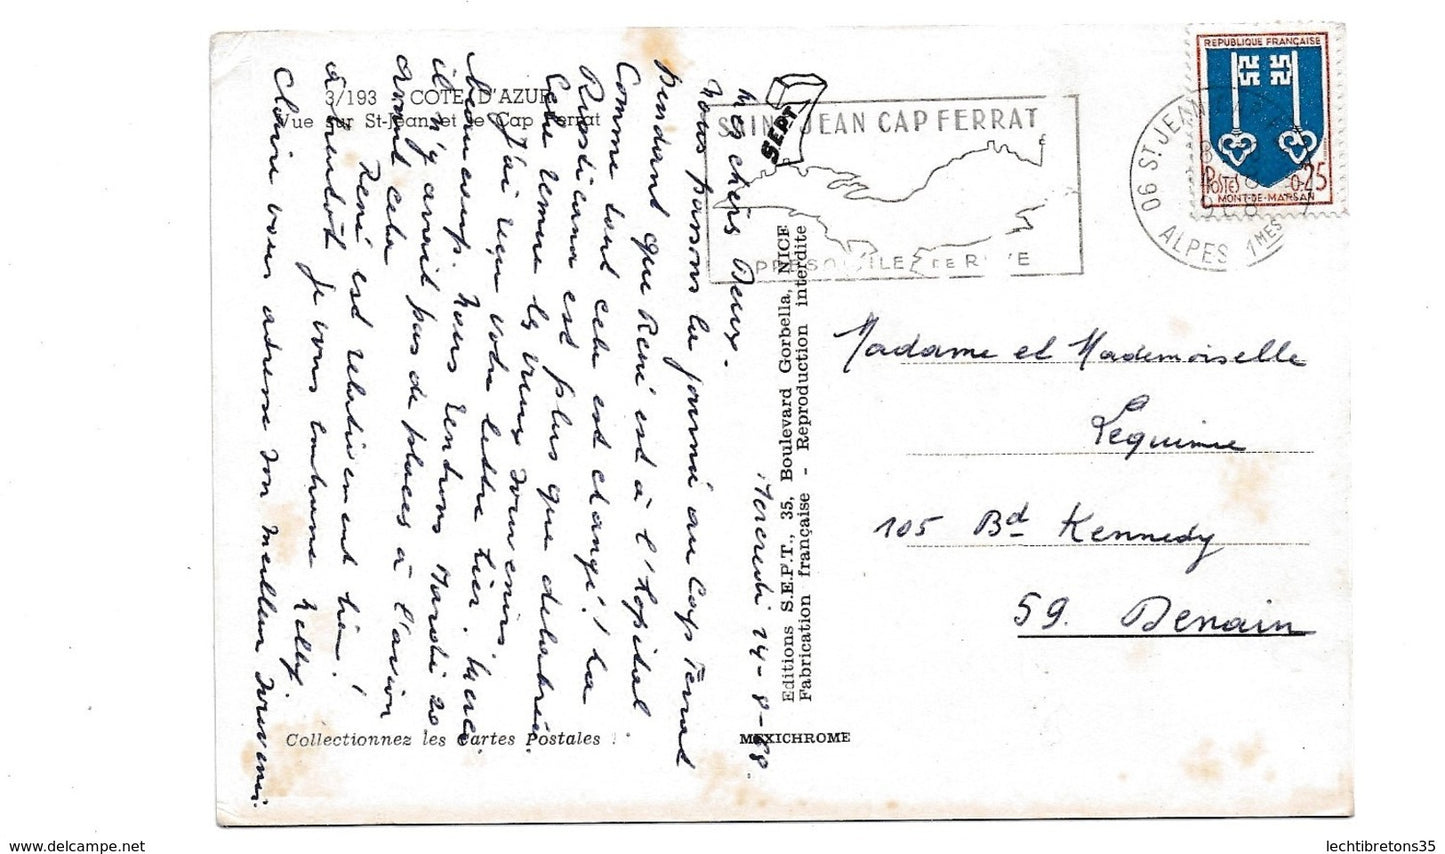 3/193 - COTE D'AZUR
Vue sur St-Jean et le Cap Ferrat
Mercredi 14-8-68
Mes chers Deux.
Nous passons la journée au Cap Ferrat
Pendant que René est à l'Hopital
Comme tout cela est changé! La
est plus que délabrée
J'ai reçu votre lettre hier. Merci
beaucoup. Nous rentrons Mardi 20
il n'y avait pas de places à l'avion
avant cela
René est relativement bien!
à bientôt je vous embrasse Nelly.
Claire vous adresse son meilleur souvenir.
Collectionnez les Cartes Postales !
MEXICHROME
Editions S.E.P.T., 35, Boulevard Gorbella, NICE
Fabrication française - Reproduction interdite
SEPT
SAINT JEAN CAP FERRAT
06 ST JEAN
ALPES MMES
1968
REPUBLIQUE FRANÇAISE
POSTES 0,25
MONT-DE-MARSAN
Madame et Mademoiselle
Lequimie
105 Bd Kennedy
59. Denain
delcampe.net
lechtibretons35